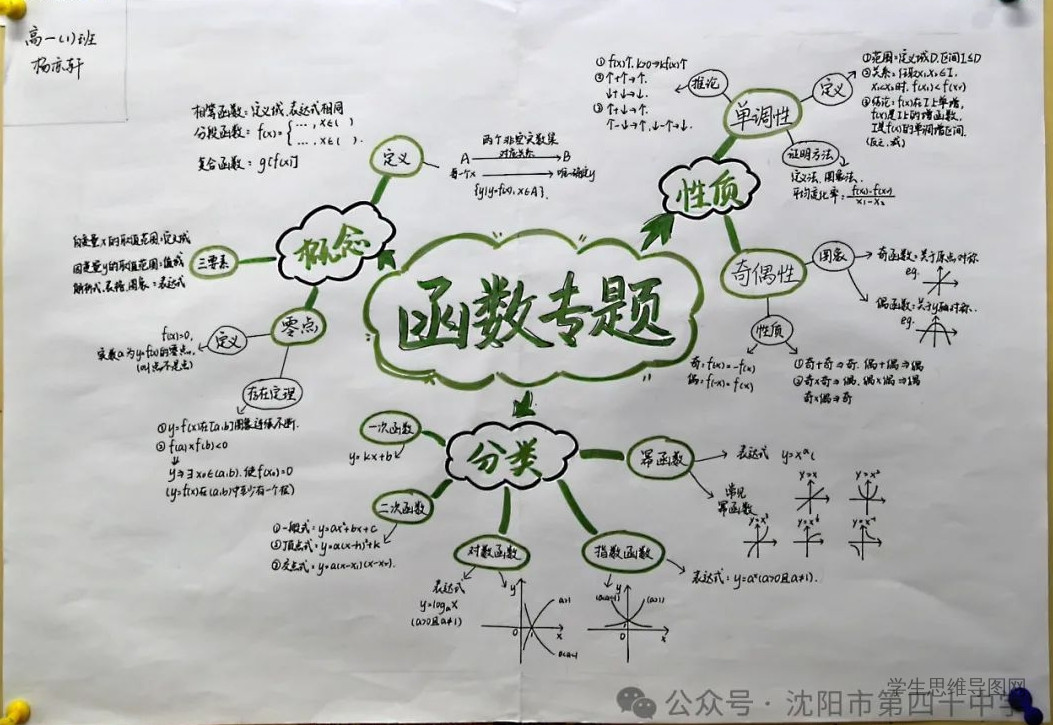 高一(1)班
杨亦轩
函数专题
概念
定义
相等函数:定义域,表达式相同
分段函数:f(x)={ ..., x∈( )
..., x∈( ).
复合函数:g[f(x)]
两个非空实数集
A 对应关系 B
每一个x 唯一确定y
{y|y=f(x), x∈A}
三要素
自变量x的取值范围:定义域
因变量y的取值范围:值域
解析式、表格、图象:表达式
零点
定义
f(x)=0,
实数a为y=f(x)的零点,
(叫点不是点)
存在定理
①y=f(x)在[a,b]图象连续不断.
②f(a)×f(b)<0
⇓
y⇒∃x₀∈(a,b).使f(x₀)=0
(y=f(x)在(a,b)中至少有一个根)
性质
单调性
推论
①f(x)↑,k>0→kf(x)↑
②↑+↑→↑.
↓+↓→↓.
③↑+↓→↑.
↑-↓→↑,↓-↑→↓.
定义
①范围:定义域D,区间I⊆D
②关系:任取x₁,x₂∈I.
x₁<x₂时,f(x₁)<f(x₂)
③结论:f(x)在I上单增,
f(x)是I上的增函数,
I是f(x)的单调增区间.
(反之,减)
证明方法
定义法、图象法、
平均变化率:f(x₁)-f(x₂)/x₁-x₂
奇偶性
图象
奇函数:关于原点对称
eg.
偶函数:关于y轴对称.
eg.
性质
奇:f(x)=-f(x)
偶:f(-x)=f(x)
①奇+奇⇒奇.偶+偶⇒偶
②奇×奇⇒偶.偶×偶⇒偶
奇×偶⇒奇
分类
一次函数
y=kx+b
二次函数
①一般式:y=ax²+bx+c
②顶点式:y=a(x-h)²+k
③交点式:y=a(x-x₁)(x-x₂).
对数函数
表达式
y=logₐx
(a>0且a≠1)
y
a>1
0 1 x
0<a<1
指数函数
y
(0<a<1) (a>1)
1
0 x
表达式:y=aˣ(a>0且a≠1).
幂函数
表达式 y=xᵃ
常见
幂函数
y=x y=x²
y=x³ y=x⁻¹
学生思维导图网
公众号·沈阳市第四十中学